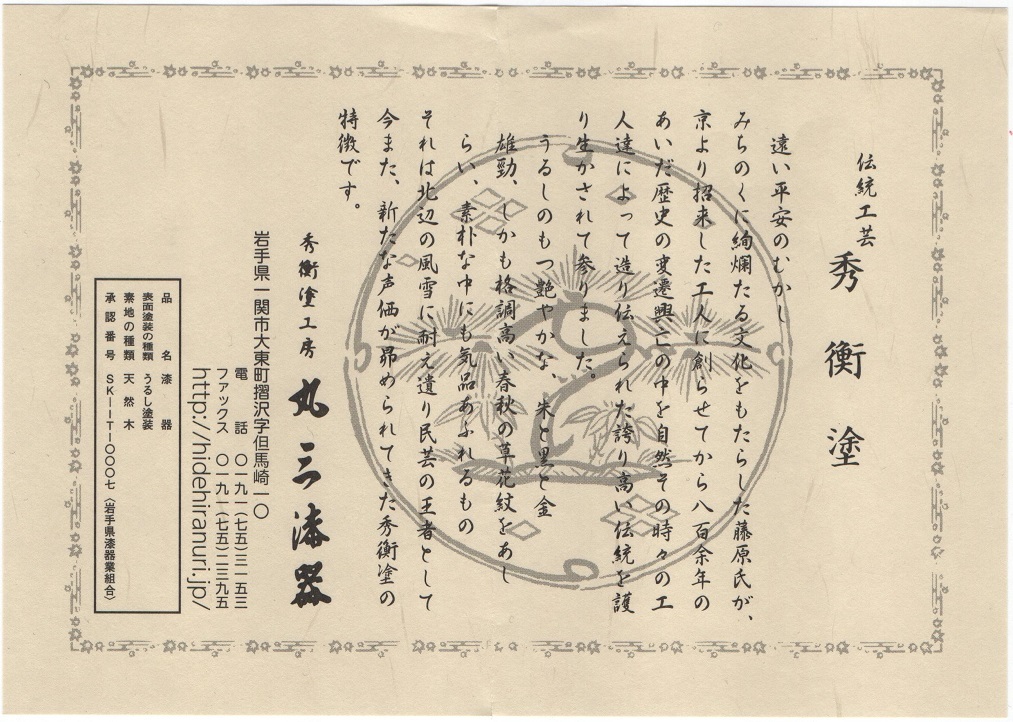 伝統工芸
秀衡塗
遠い平安のむかし
みちのくに絢爛たる文化をもたらした藤原氏が、
京より招来した工人に創らせてから八百余年の
あいだ歴史の変遷興亡の中を自然その時々の工
人達によって造り伝えられた誇り高い伝統を護
り生かされて参りました。
うるしのもつ艶やかな、朱と黒と金
雄勁、しかも格調高い春秋の草花紋をあし
らい、素朴な中にも気品あふれるもの
それは北辺の風雪に耐え遺り民芸の王者として
今また、新たな声価が昴められてきた秀衡塗の
特徴です。
秀衡塗工房
丸三漆器
岩手県一関市大東町摺沢字但馬崎一〇
電話 〇一九一(七五)三一五三
ファックス 〇一九一(七五)二三九五
http://hidehiranuri.jp/
品名 漆器
表面塗装の種類 うるし塗装
素地の種類 天然木
承認番号 SKーITー〇〇〇七 〈岩手県漆器業組合〉